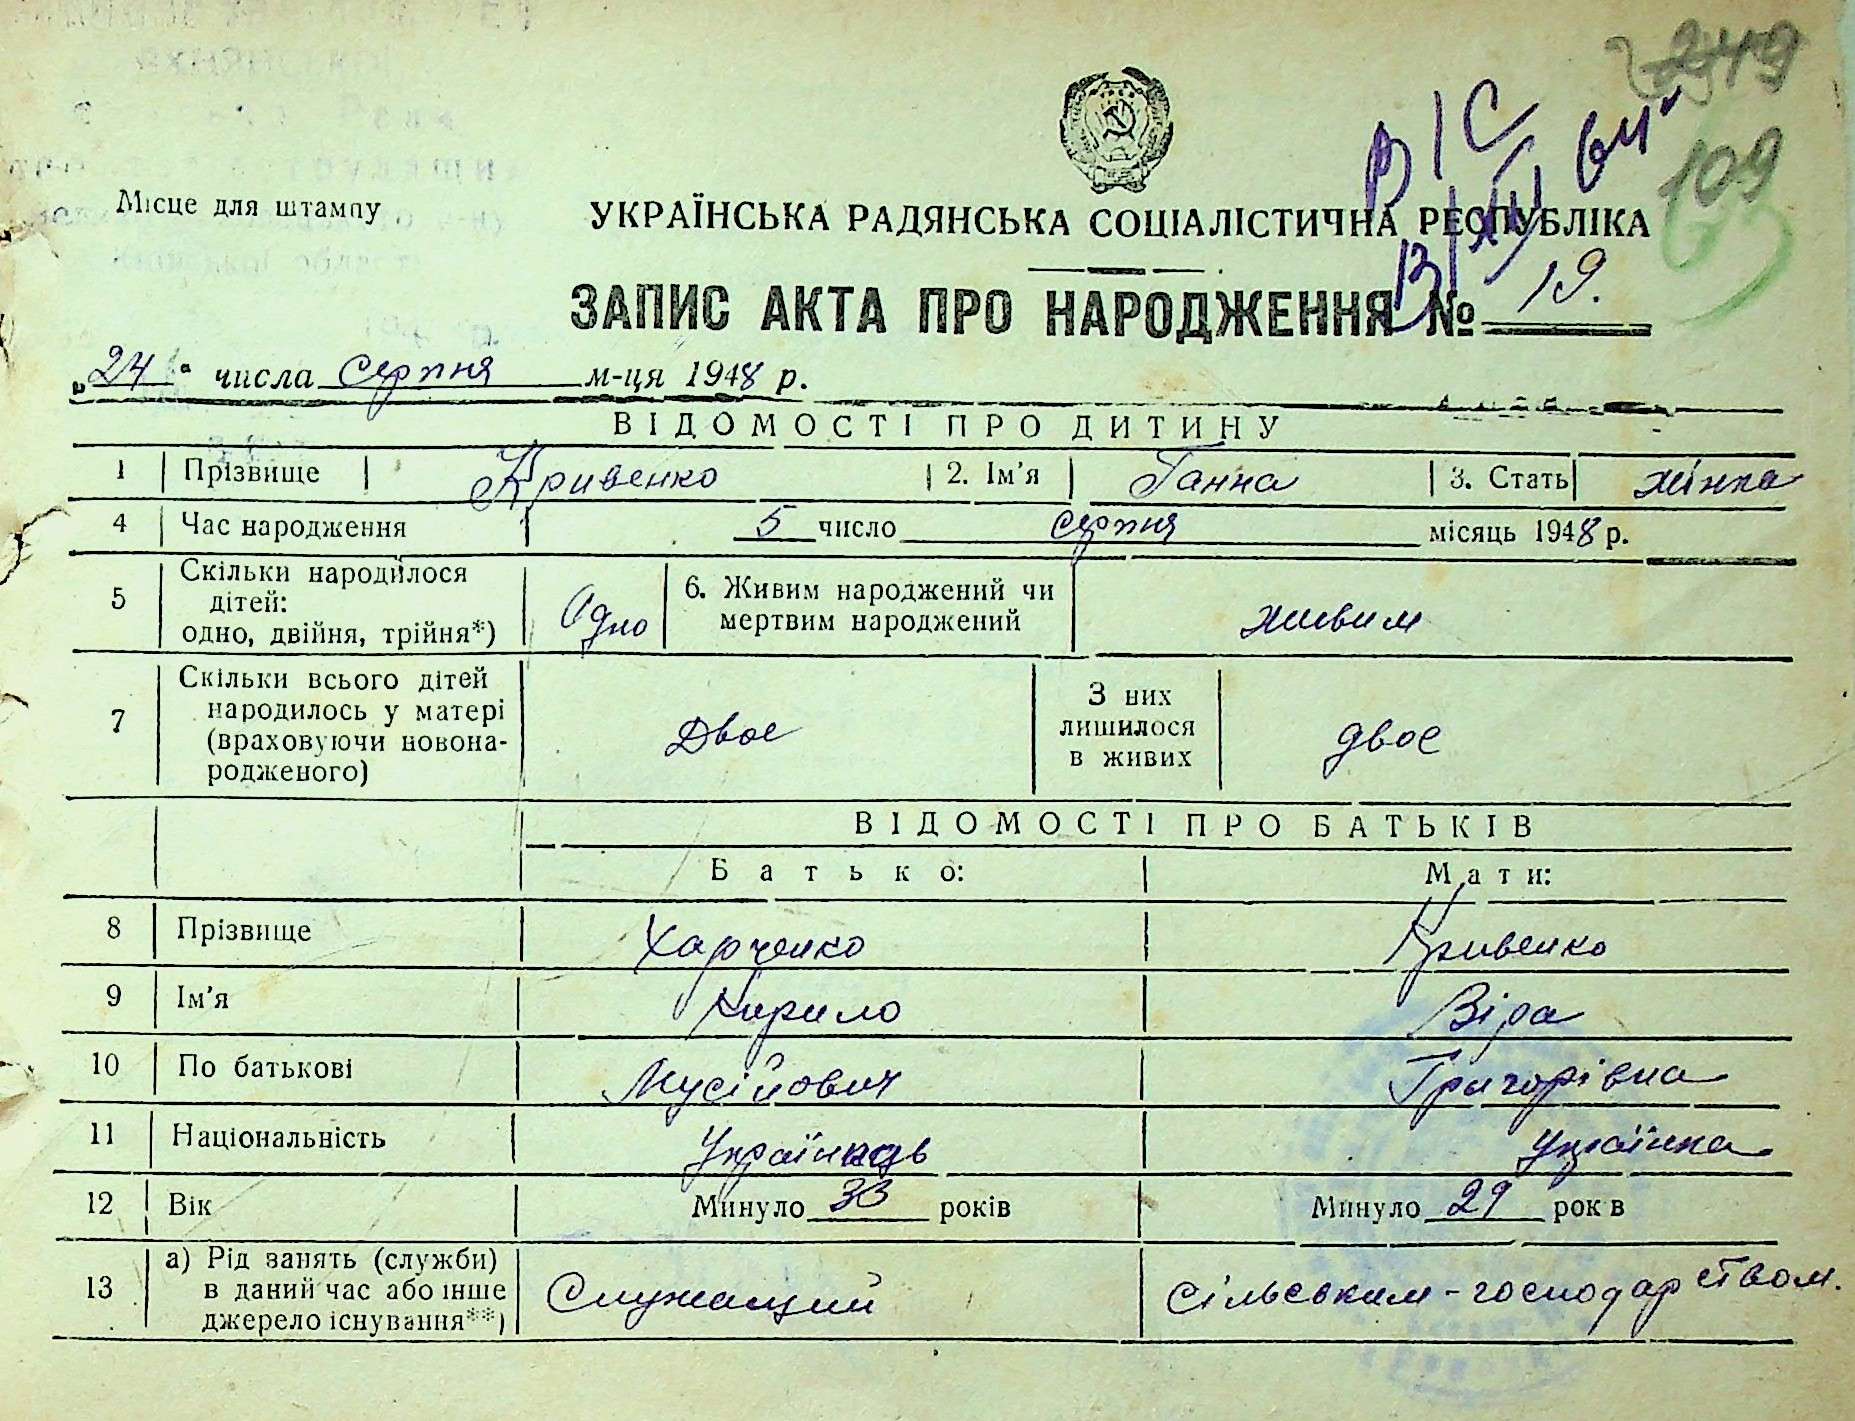 249
109
63
Місце для штампу
УКРАЇНСЬКА РАДЯНСЬКА СОЦІАЛІСТИЧНА РЕСПУБЛІКА
ЗАПИС АКТА ПРО НАРОДЖЕННЯ № 19.
„24“ числа серпня м-ця 1948 р.
ВІДОМОСТІ ПРО ДИТИНУ
1 Прізвище Кривенко 2. Ім'я Ганна 3. Стать жінка
4 Час народження 5 число серпня місяць 1948 р.
5 Скільки народилося дітей: одно, двійня, трійня*) Одно 6. Живим народжений чи мертвим народжений живим
7 Скільки всього дітей народилось у матері (враховуючи новонародженого) Двоє З них лишилося в живих двоє
ВІДОМОСТІ ПРО БАТЬКІВ
Батько: Мати:
8 Прізвище Харченко Кривенко
9 Ім'я Кирило Віра
10 По батькові Мусійович Григорівна
11 Національність Українець Українка
12 Вік Минуло 33 років Минуло 29 рок в
13 а) Рід занять (служби) в даний час або інше джерело існування**) Служащий сільським-господарством.